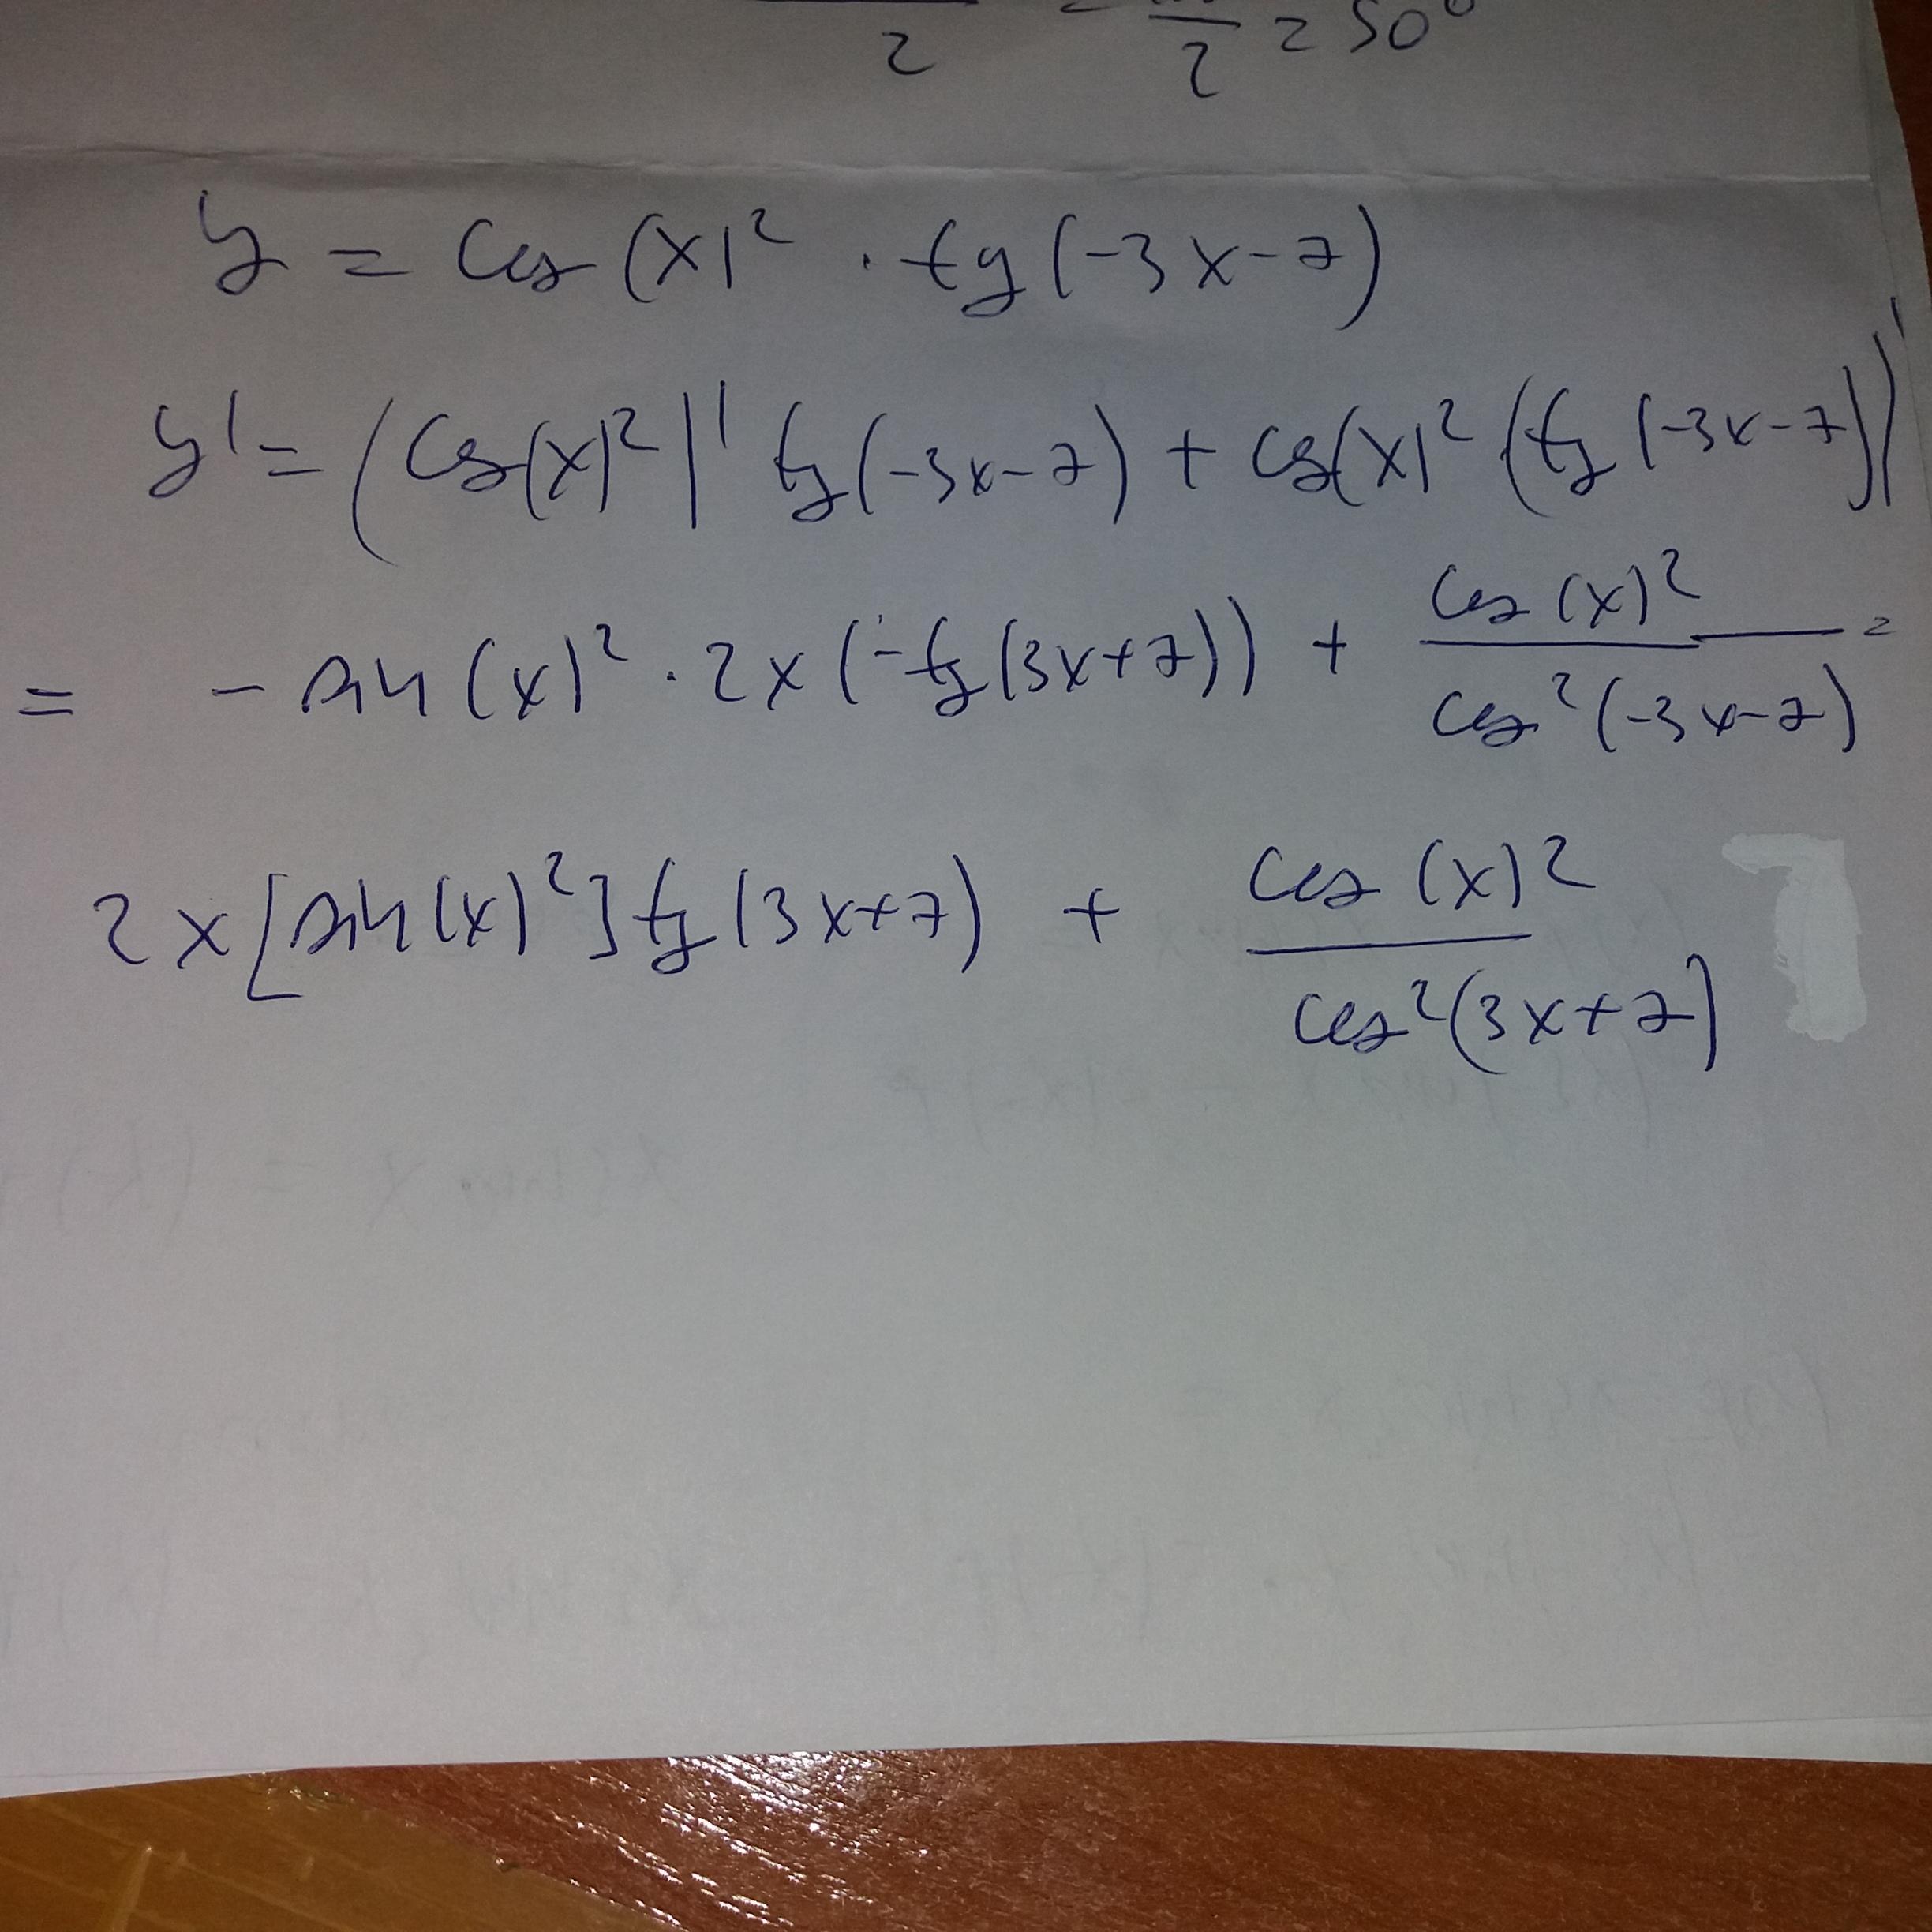 2 2 = 50°
y = cos (x)² · tg (-3x-7)
y' = (cos(x)²)' tg(-3x-7) + cos(x)² (tg (-3x-7))'
= - sin (x)² · 2x (-tg (3x+7)) + cos (x)² / cos² (-3x-7) =
2x [sin (x)²] tg (3x+7) + cos (x)² / cos² (3x+7)